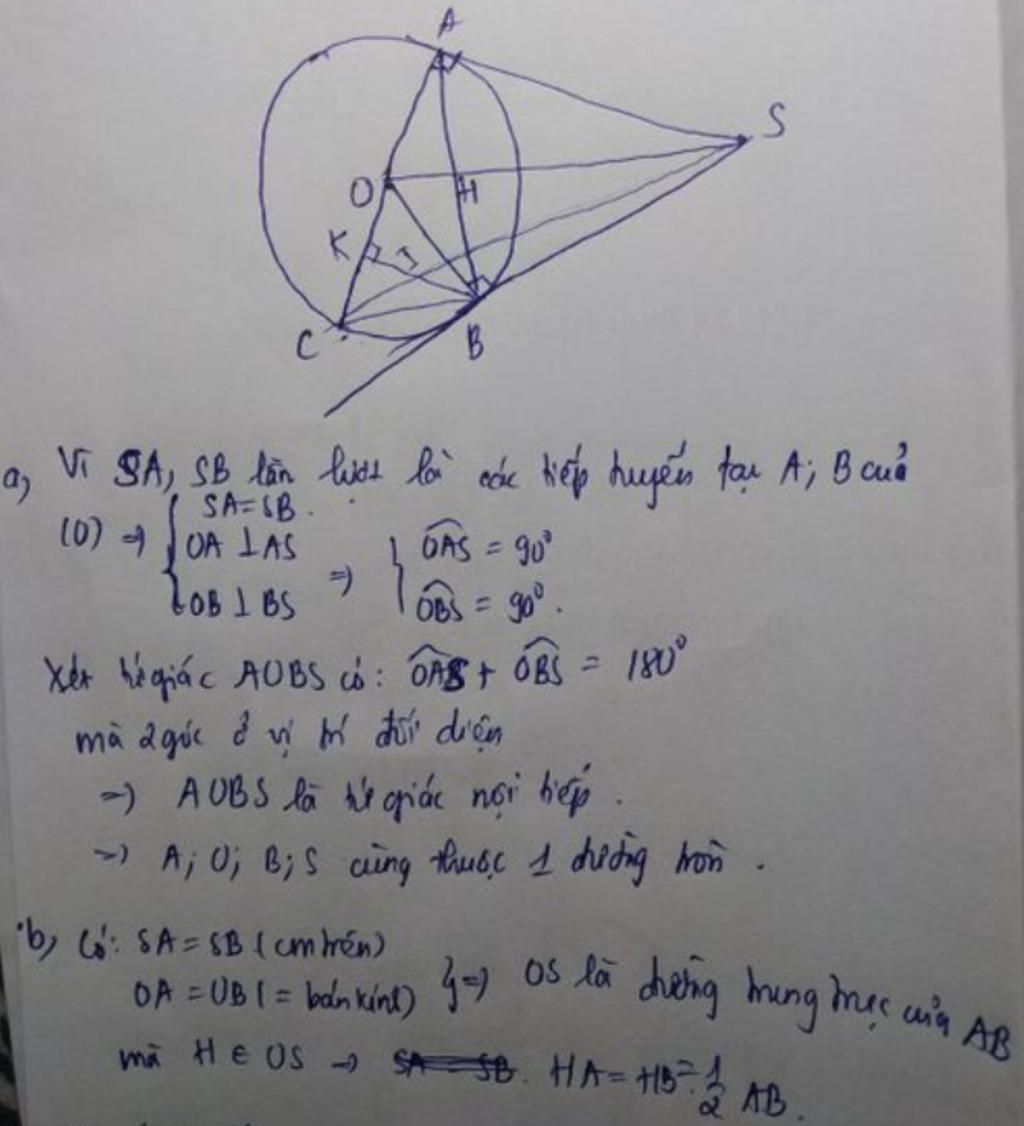 A
S
O
H
K
I
C
B
a, Vì SA, SB lần lượt là các tiếp tuyến tại A; B của
(O) => { SA = SB.
OA ⊥ AS => { OAS = 90°
OB ⊥ BS OBS = 90°.
Xét tứ giác AOBS có: OAS + OBS = 180°
mà 2 góc ở vị trí đối diện
=> AOBS là tứ giác nội tiếp.
=> A; O; B; S cùng thuộc 1 đường tròn.
b, Có: SA = SB (cm trên)
OA = OB (= bán kính) } => OS là đường trung trực của AB
mà H ∈ OS => SA = SB. HA = HB = 1/2 AB.